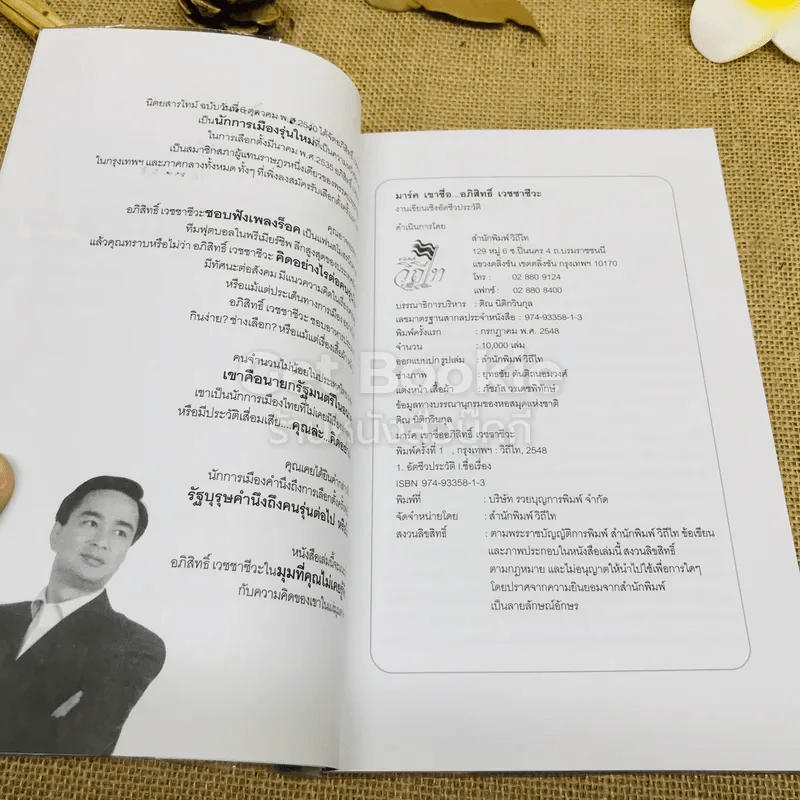 นิตยสารไทม์ ฉบับวันที่ 6 ตุลาคม พ.ศ.2540 ได้
เป็นนักการเมืองรุ่นใหม่ที่เป็นความ
ในการเลือกตั้งมีนาคม พ.ศ.2535 อภิสิทธิ์
เป็นสมาชิกสภาผู้แทนราษฎรหนึ่งเดียวของพรรค
ในกรุงเทพฯ และภาคกลางทั้งหมด ทั้งๆ ที่เพิ่งลงสมัครรับเลือกตั้ง
อภิสิทธิ์ เวชชาชีวะชอบฟังเพลงร็อค เป็นแฟน
ทีมฟุตบอลในพรีเมียร์ชิพ ลีกสูงสุดของ
แล้วคุณทราบหรือไม่ว่า อภิสิทธิ์ เวชชาชีวะ คิดอย่างไรต่อ
มีทัศนะต่อสังคม มีแนวความคิดใน
หรือแม้แต่ประเด็นทางการเมือง
อภิสิทธิ์ เวชชาชีวะ ชอบอาหาร
กินง่าย? ช่างเลือก? หรือแม้แต่เรื่องเสื้อผ้า
คนจำนวนไม่น้อยในประเทศ
เขาคือนายกรัฐมนตรีใน
เขาเป็นนักการเมืองไทยที่ไม่เคยมี
หรือมีประวัติเสื่อมเสีย....คุณล่ะ...คิด
คุณเคยได้ยินคำกล่าว
นักการเมืองคำนึงถึงการเลือกตั้ง
รัฐบุรุษคำนึงถึงคนรุ่นต่อไป
หนังสือเล่มนี้จะ
อภิสิทธิ์ เวชชาชีวะในมุมที่คุณไม่เคย
กับความคิดของเขาใน
มาร์ค เขาชื่อ...อภิสิทธิ์ เวชชาชีวะ
งานเขียนเชิงอัตชีวประวัติ
ดำเนินการโดย
วิถีไท
สำนักพิมพ์ วิถีไท
129 หมู่ 6 ซ.ปิ่นนคร 4 ถ.บรมราชชนนี
แขวงตลิ่งชัน เขตตลิ่งชัน กรุงเทพฯ 10170
โทร : 02 880 9124
แฟกซ์ : 02 880 8400
บรรณาธิการบริหาร : ติณ นิติกวินกุล
เลขมาตรฐานสากลประจำหนังสือ : 974-93358-1-3
พิมพ์ครั้งแรก : กรกฎาคม พ.ศ. 2548
จำนวน : 10,000 เล่ม
ออกแบบปก รูปเล่ม : สำนักพิมพ์ วิถีไท
ช่างภาพ : ยุทธชัย ตันติถนอมวงศ์
แต่งหน้า เสื้อผ้า : ภัชภัส วรเดชพิทักษ์
ข้อมูลทางบรรณานุกรมของหอสมุดแห่งชาติ
ติณ นิติกวินกุล
มาร์ค เขาชื่ออภิสิทธิ์ เวชชาชีวะ
พิมพ์ครั้งที่ 1 . กรุงเทพฯ : วิถีไท, 2548
1. อัตชีวประวัติ I.ชื่อเรื่อง
ISBN 974-93358-1-3
พิมพ์ที่ : บริษัท รวยบุญการพิมพ์ จำกัด
จัดจำหน่ายโดย : สำนักพิมพ์ วิถีไท
สงวนลิขสิทธิ์ : ตามพระราชบัญญัติการพิมพ์ สำนักพิมพ์ วิถีไท ข้อเขียน
และภาพประกอบในหนังสือเล่มนี้ สงวนลิขสิทธิ์
ตามกฎหมาย และไม่อนุญาตให้นำไปใช้เพื่อการใดๆ
โดยปราศจากความยินยอมจากสำนักพิมพ์
เป็นลายลักษณ์อักษร